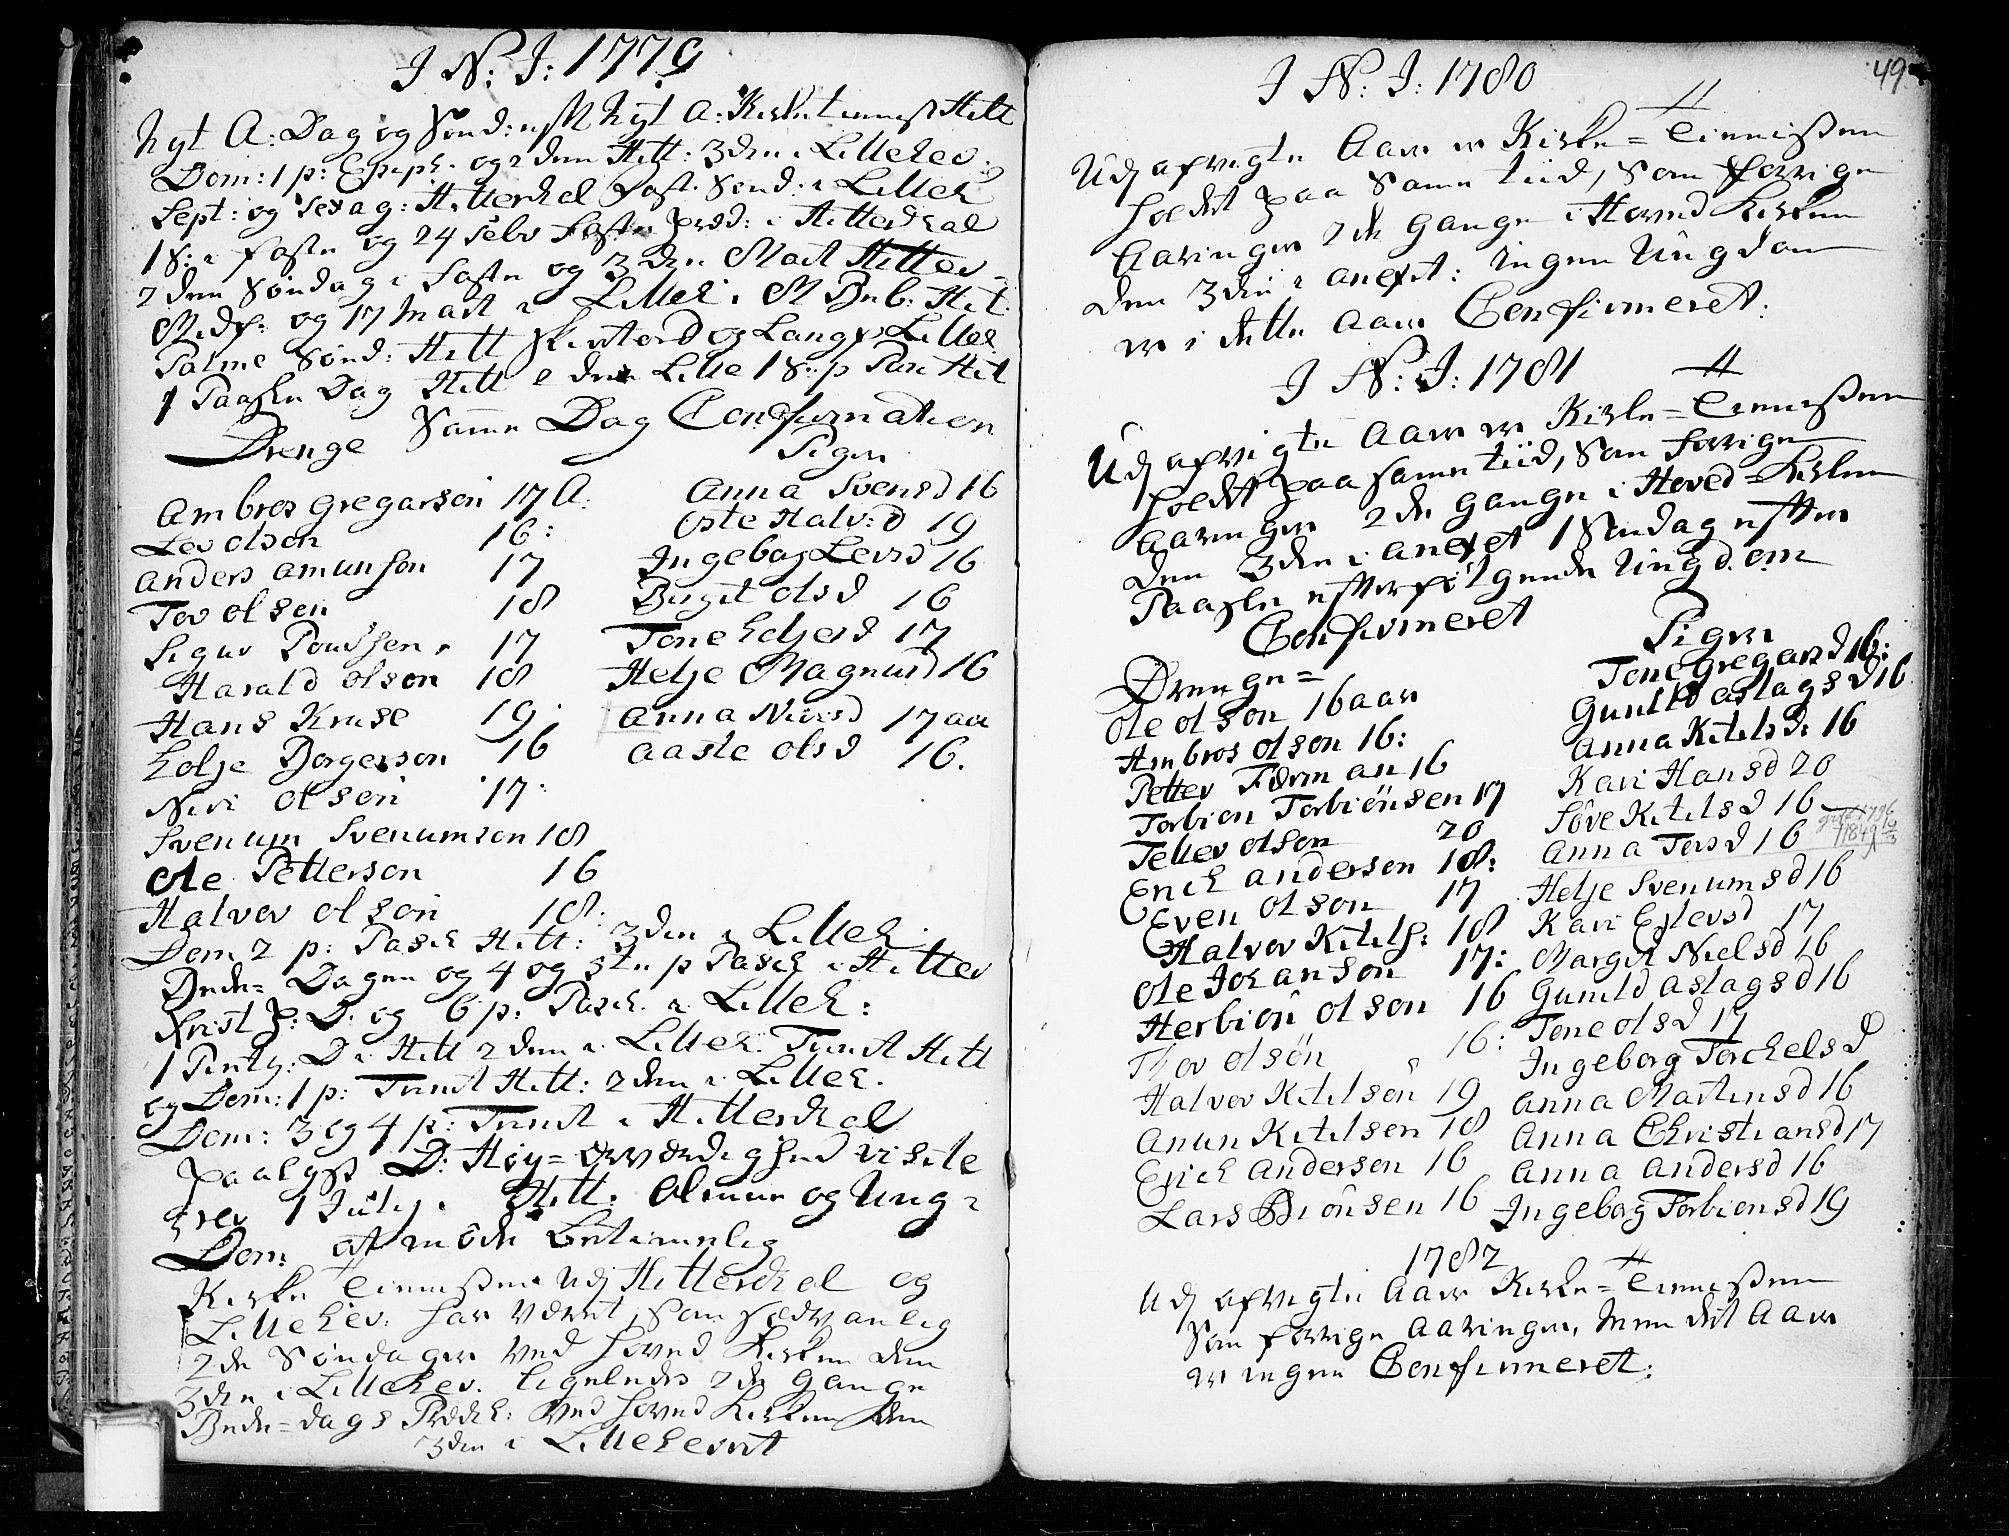 I N: I: 1779
Nyt A: Dag og Sønd: eft Nyt A: Kirke tienest Hitt
Dom: 1 p: Epiph. og 2den Hitt: 3den i Lilleher:
Sept: og Sexag: Hitterdal Fast. Sønd: i Lilleh
1 S: i faste og 24 Febr Faste Præd: i Hitterdal
2den Søndag i faste og 3den Mart Hitter=
Midf: og 17 Mart i Lilleh: M Beb: Hit:
Palme Sønd: Hitt Skiertord og Langf: Lilleh
1 Paaske Dag Hitt 2den Lille 1 S: p Pasc Hit
Samme Dag Confirmation
Drenge Piger
Ambros Gregarson 17 A. Anna Svensd 16
Lev olson 16: Oste Halv:d 19
Anders Amunson 17 Ingebor Levsd 16
Tov olsen 18 Birgit olsd 16
Sigur Poulsen 17 Tone Eoljersd 17
Harald olson 18 Helje Magnusd 16
Hans Kruse 19. Anna Nirisd 17 aar
Eolje Borgerson 16 Aaste olsd 16.
Niri olson 17.
Svenum Svenumson 18
Ole Petterson 16
Halvor olson 18.
Dom 2 p: Pasch Hitt: 3den i Lilleh.
Bede= Dagen og 4 og 5te p Pasch i Hitter
Krist H: D. og 6 p: Pasch. i Lilleh:
1 Pintz: D i Hitt 2den i Lilleh. Trinit Hitt
og Dom: 1 p: Trinit Hitt: 2den i Lilleh.
Dom: 3 og 4 p: Trinit i Hitterdal
paalyst D: Høy=Ærværdighed visite
1 July i Hitt. Almue og Ung=
Dom at møde betimelig
Kirke Tienesten udj Hitterdal og
Lilleher: har været, som sædvanlig
2de Søndager ved hoved Kirken den
3den i Lilleher. ligeledes 2de gange
Bede=dags Prædik: ved hoved Kirken den
3den i Lilleherret
49
I N: I: 1780
Udj afvigte Aar er Kirke=Tienesten
holdt paa samme tiid, som forrige
Aaringer 2de gange i Hoved Kirken
den 3die i anexet: ingen Ungdom
er i dette Aar Confirmeret:
I N: I: 1781
Udj afvigte Aar er Kirke=Tienesten
holdt paa samme tiid, som forrige
Aaringer 2de gange i Hoved=Kirken
den 3den i anexet 1 Søndag efter
Paaske efterfølgende Ungdom
Confirmeret
Drenge= Piger
Ole olson 16 aar Tone Gregarsd 16:
Ambros olson 16: Gunild aslagsd 16
Petter Færman 16 Anna Ketelsd: 16
Torbion Torbiönsen 17 Kari Hansd 20
Tellev olson 20 Söve Ketelsd 16
Erich anderson 18: Anna Torsd 16
Even olson 17 Helje Svenumsd 16
Halvor Ketels: 18 Kari Eylevsd 17
Ole Johanson 17: Margit Nielsd 16
Herbiön olson 16 Gunild aslagsd 16
Thov olsön 16: Tone olsd 17
Halvor Ketelson 19 Ingeborg Torchelsd
Anun Ketelsen 18 Anna Martensd 16
Erich andersen 16 Anna Christiansd 17
Lars Biönsen 16 Anna Andersd 16
Ingeborg Torbionsd 19
1782
Udj afvigte Aar Kirke=Tienesten
som forrige Aaringer, men det Aar
er ingen Confirmeret: